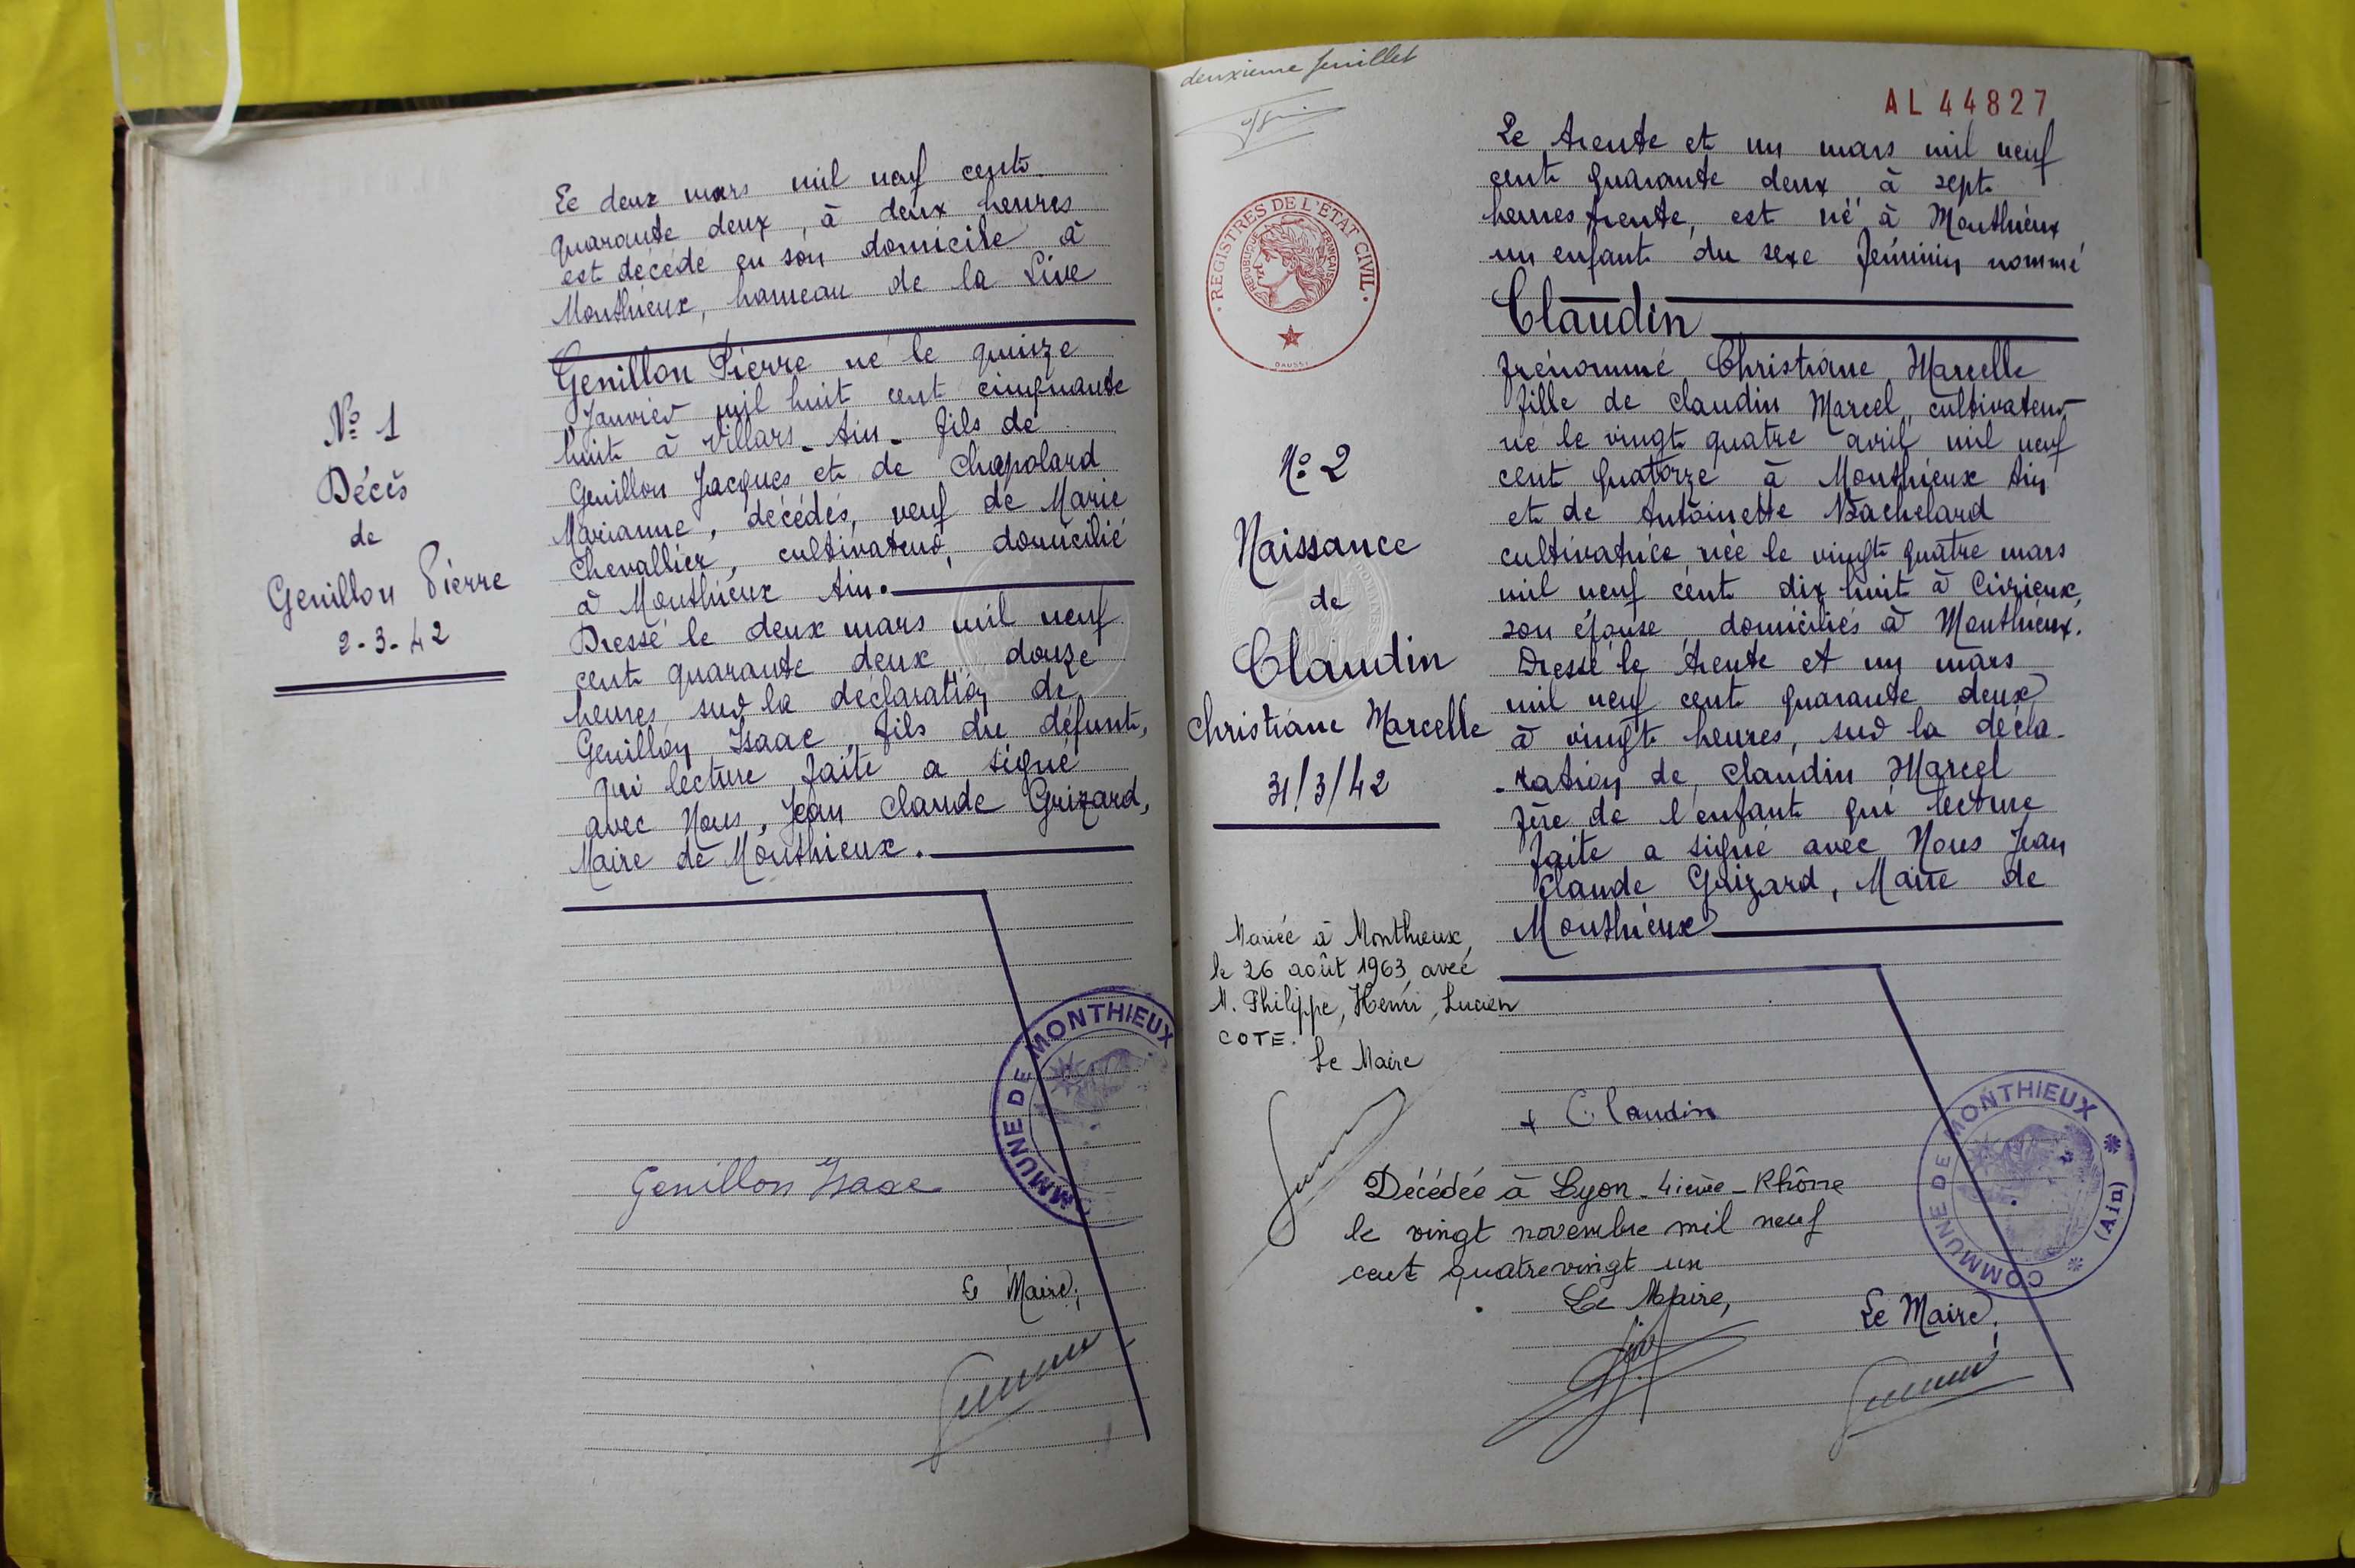 Le deux mars mil neuf cent
quarante deux, à deux heures
est décédé en son domicile à
Monthieux, hameau de la Live
Genillon Pierre né le quinze
Janvier mil huit cent cinquante
huit à Villars - Ain - fils de
Genillon Jacques et de Chapolard
Marianne, décédés, veuf de Marie
Chevallier, cultivateur, domicilié
à Monthieux Ain.
Dressé le deux mars mil neuf
cent quarante deux, douze
heures, sur la déclaration de
Genillon Isaac, fils du défunt,
qui lecture faite a signé
avec Nous, Jean Claude Grizard,
Maire de Monthieux.
Nº 1
Décès
de
Genillon Pierre
2-3-42
COMMUNE DE MONTHIEUX
Genillon Isaac
Le Maire,
deuxieme feuillet
AL 44827
REGISTRES DE L'ETAT CIVIL
REPUBLIQUE FRANÇAISE
DAUSSY
Nº 2
Naissance
de
Claudin
Christiane Marcelle
31/3/42
Le trente et un mars mil neuf
cent quarante deux à sept
heures trente, est né à Monthieux
un enfant du sexe féminin nommé
Claudin
prénommé Christiane Marcelle
fille de Claudin Marcel, cultivateur
né le vingt quatre avril mil neuf
cent quatorze à Monthieux Ain
et de Antoinette Bachelard
cultivatrice née le vingt quatre mars
mil neuf cent dix huit à Civrieux,
son épouse domiciliés à Monthieux.
Dressé le trente et un mars
mil neuf cent quarante deux
à vingt heures, sur la décla-
-ration de Claudin Marcel
père de l'enfant qui lecture
faite a signé avec Nous Jean
Claude Grizard, Maire de
Monthieux
Mariée à Monthieux,
le 26 août 1963 avec
M. Philippe, Henri, Lucien
COTE.
Le Maire
+ Claudin
COMMUNE DE MONTHIEUX
(Ain)
Décédée à Lyon - 4ième - Rhône
le vingt novembre mil neuf
cent quatrevingt un
Le Maire,
Le Maire,